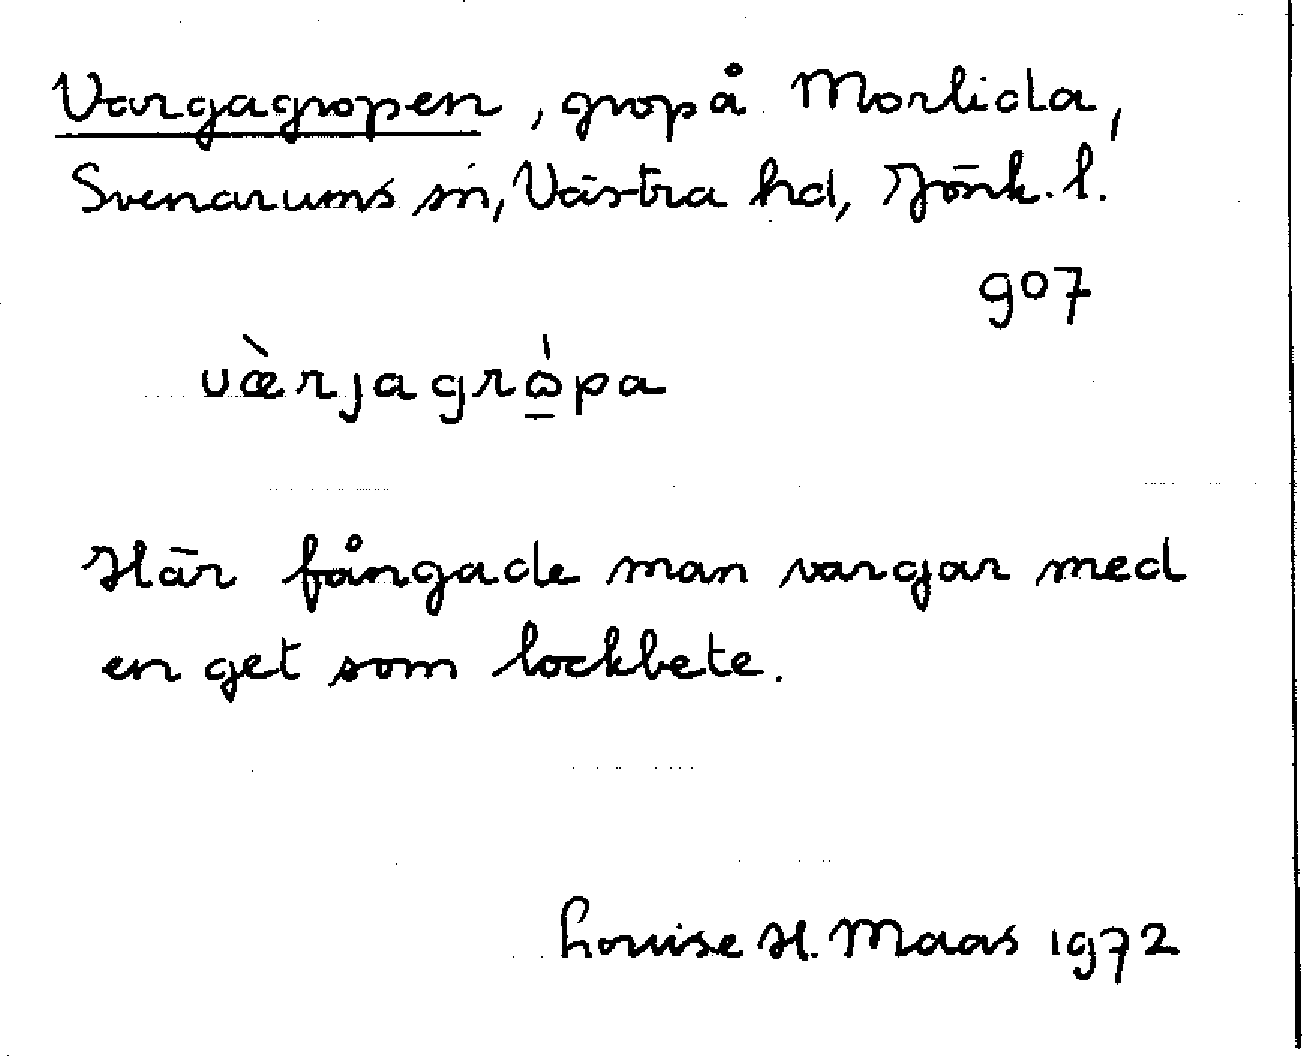 Vargagropen, grop å Morlida,
Svenarums sn, Västra hd, Jönk. l.
907
vœ̀rjagrɷ̠̀pa
Här fångade man vargar med
en get som lockbete.
Louise H. Maas 1972